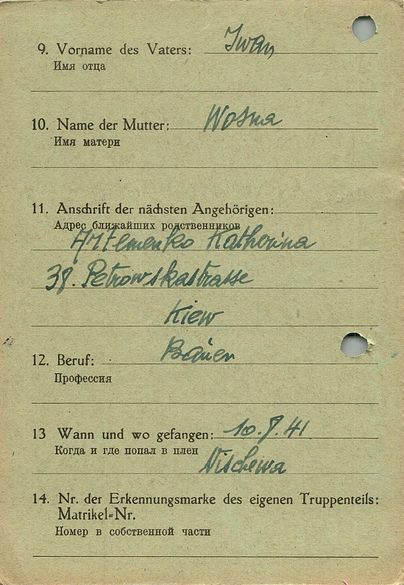 9. Vorname des Vaters: Iwan
Имя отца
10. Name der Mutter: Wosna
Имя матери
11. Anschrift der nächsten Angehörigen:
Адрес ближайших родственников
Artemenko Katherina
38. Petrowskastrasse
Kiew
12. Beruf: Bauer
Профессия
13 Wann und wo gefangen: 10.8.41
Когда и где попал в плен
Nischewa
14. Nr. der Erkennungsmarke des eigenen Truppenteils:
Matrikel-Nr.
Номер в собственной части